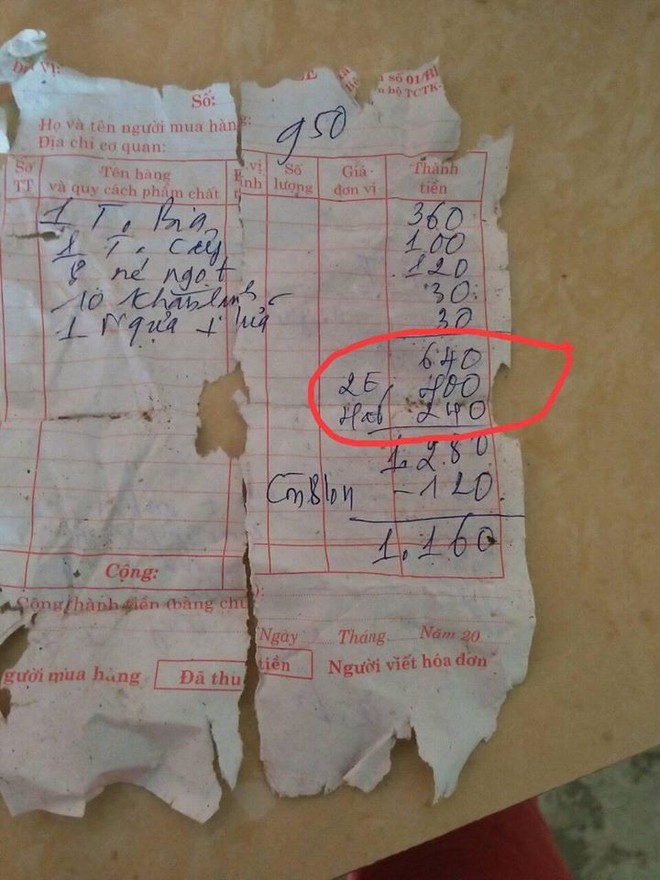 Đơn vị:
số 01/B
bộ TCTK-
Số:
950
Họ và tên người mua hàng:
Địa chỉ cơ quan:
Số TT Tên hàng và quy cách phẩm chất vị tính Số lượng Giá đơn vị Thành tiền
1 T. Bia 360
1 T. Cây 100
8 né ngọt 120
10 Khăn lạnh 30
1 Ngựa 30
640
2E 400
240
1.280
-120
1.160
Cộng:
Cộng thành tiền (bằng chữ):
Ngày Tháng Năm 20
gười mua hàng Đã thu tiền Người viết hóa đơn